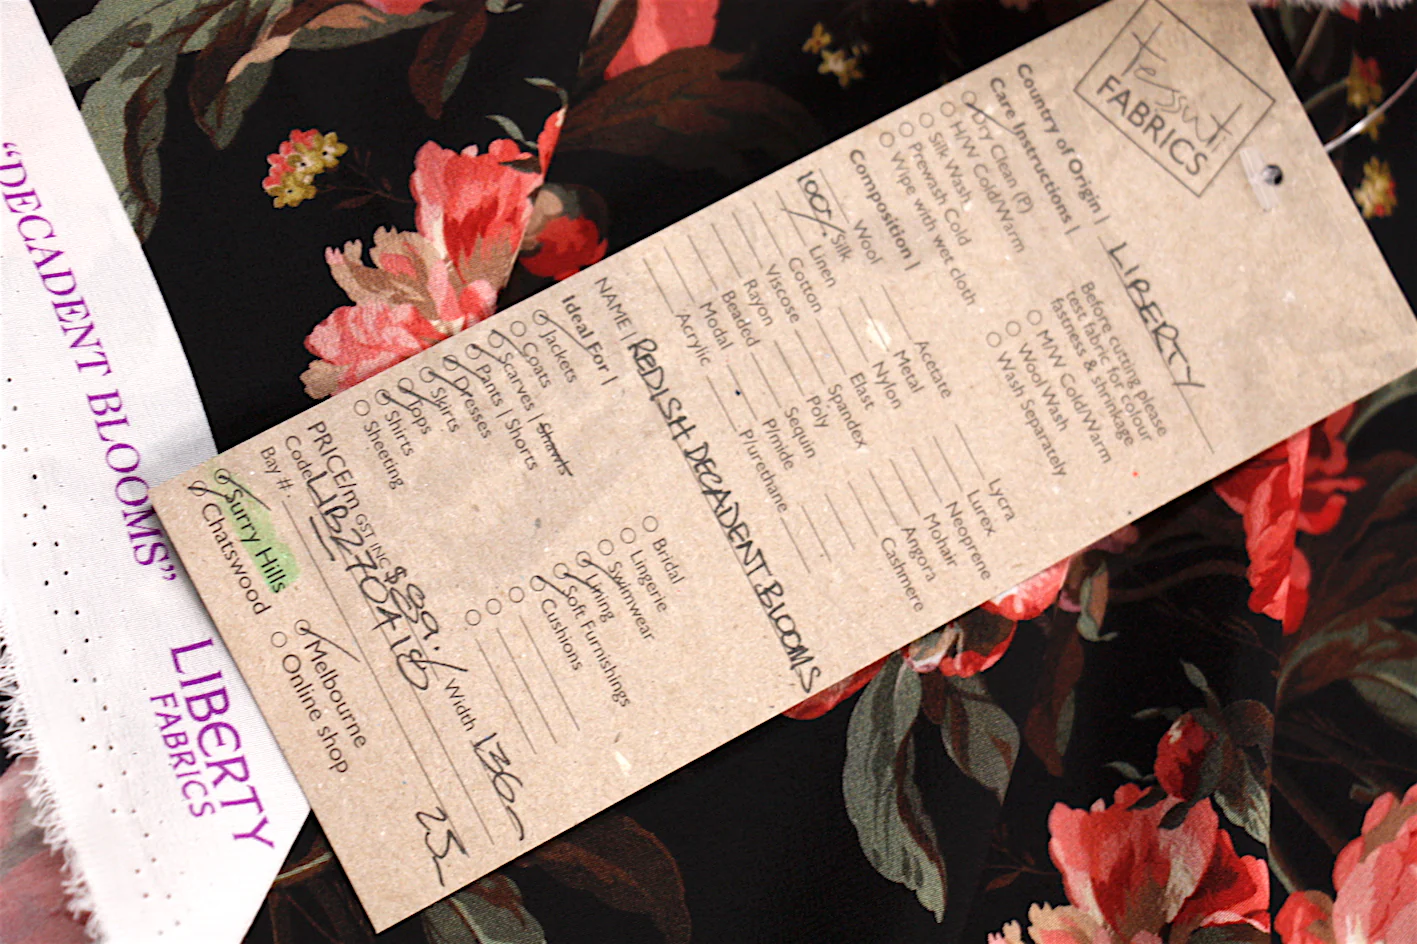 tessuti
FABRICS
Country of Origin | LIBERTY
Care Instructions |
Dry Clean (P)
H/W Cold/Warm
Silk Wash
Prewash Cold
Wipe with wet cloth
Before cutting please
test fabric for colour
fastness & shrinkage
M/W Cold/Warm
Wool Wash
Wash Separately
Composition |
Wool
100% Silk
Linen
Cotton
Viscose
Rayon
Beaded
Modal
Acrylic
Acetate
Metal
Nylon
Elast
Spandex
Poly
Sequin
P/mide
P/urethane
Lycra
Lurex
Neoprene
Mohair
Angora
Cashmere
NAME | REDISH DECADENT BLOOMS
Ideal For |
Jackets
Coats
Scarves | Shawls
Pants | Shorts
Dresses
Skirts
Tops
Shirts
Sheeting
Bridal
Lingerie
Swimwear
Lining
Soft Furnishings
Cushions
PRICE/m GST INC $89. Width 136
Code LIB270418
Bay #. 25
Surry Hills
Chatswood
Melbourne
Online shop
“DECADENT BLOOMS”
LIBERTY
FABRICS